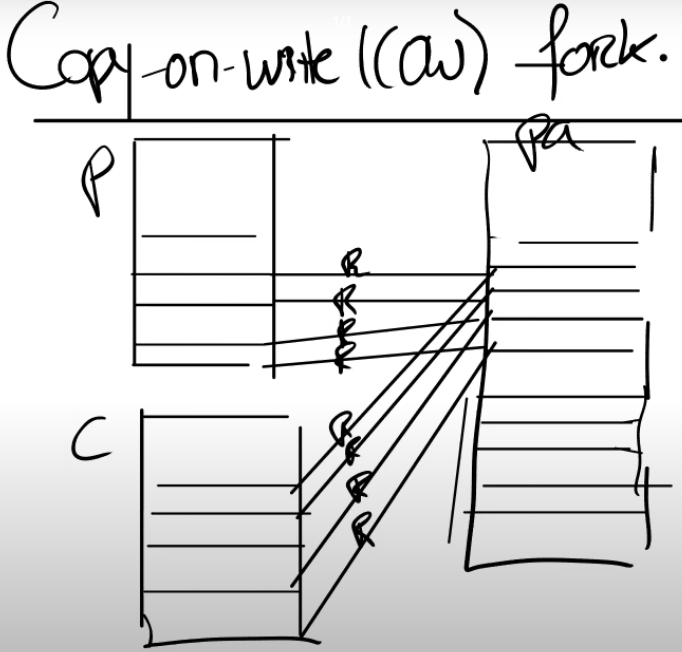 Copy-on-write (COW) fork.
P
pa
R
R
R
R
C
R
R
R
R